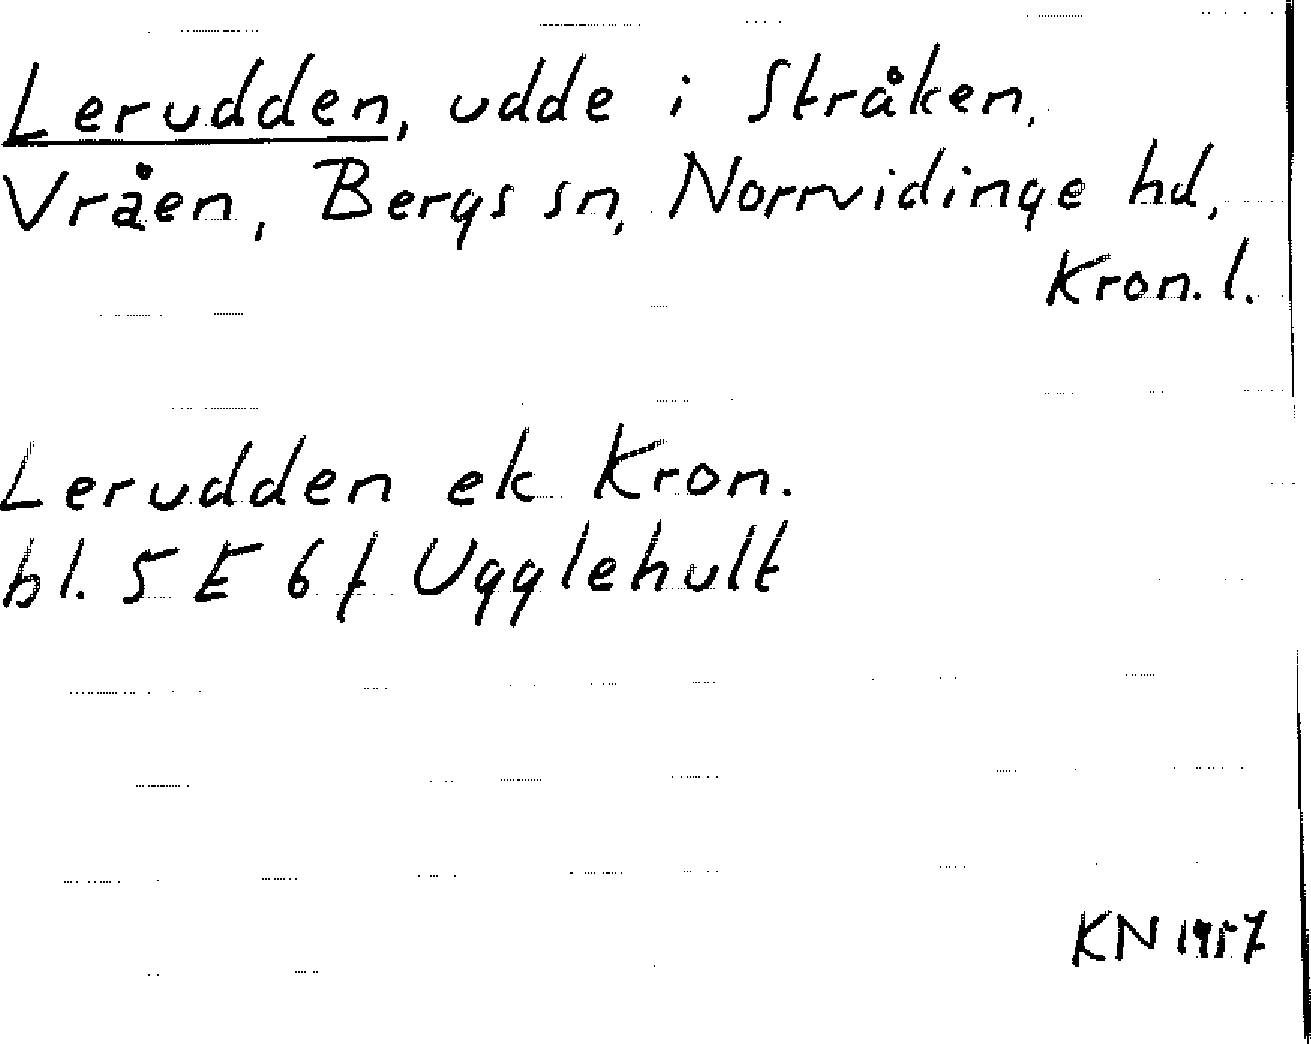 Lerudden, udde i Stråken,
Vråen, Bergs sn, Norrvidinge hd,
Kron. l.
Lerudden ek Kron.
bl. 5 E 6 f Ugglehult
KN 1957